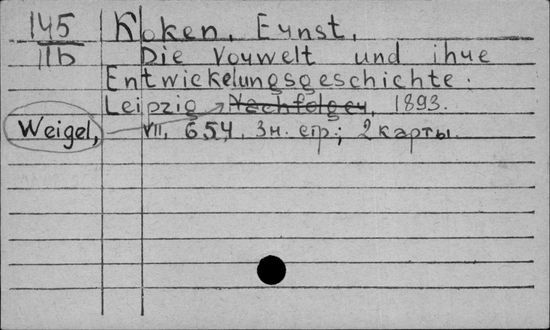 145 Koken, Ernst.
IIb Die Vorwelt und ihre
Entwickelungsgeschichte.
Leipzig Nachfolger, 1893.
Weigel, VII, 654, 3н. стр.; 2 карты.